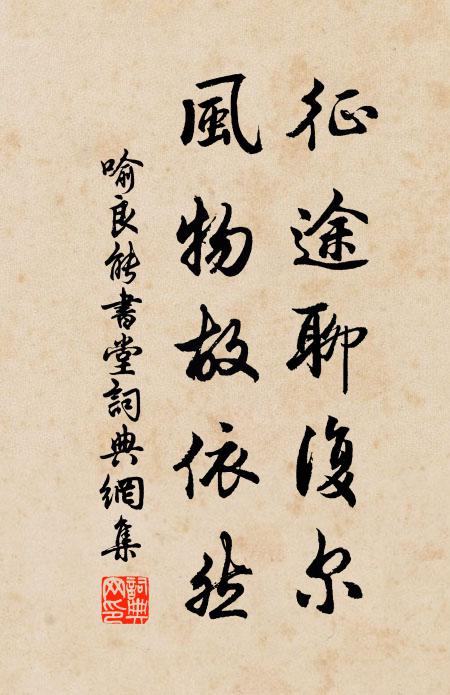 征途聊復尔
風物故依然
喻良能書堂詞典網集
詞典網印